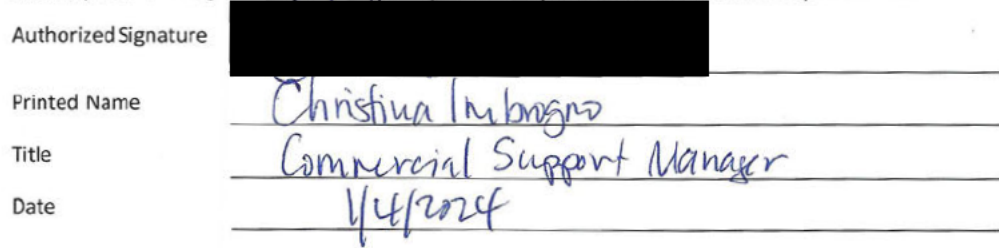 Authorized Signature
Printed Name Christina Imbrogno
Title Commercial Support Manager
Date 1/4/2024